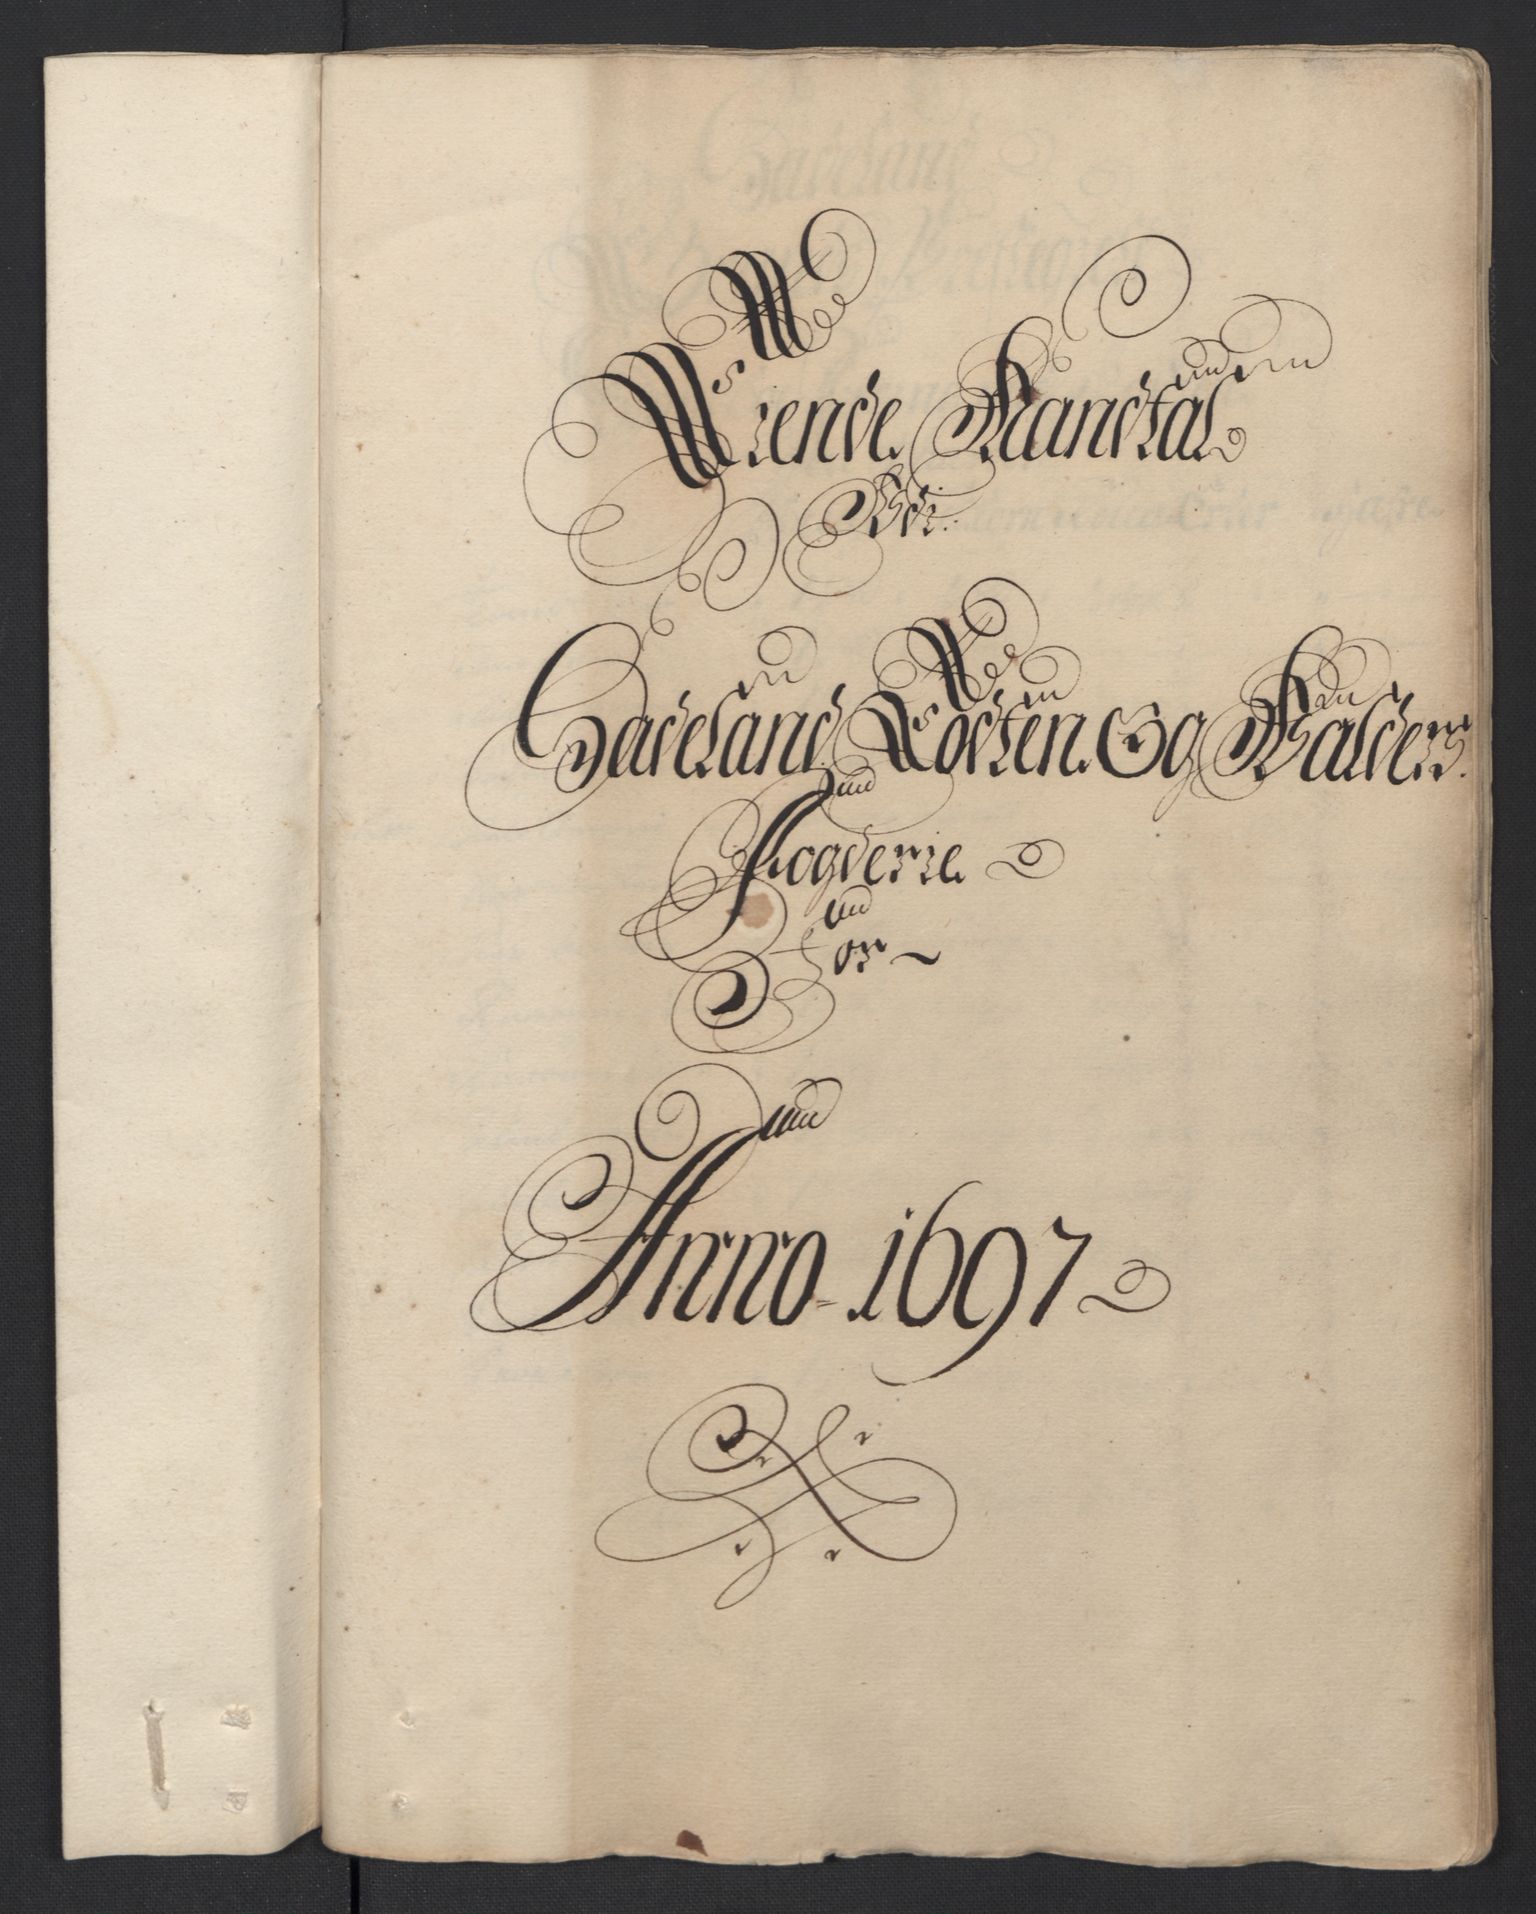 Tiende Mandtal
Vdi
Hadeland Todten Og Valders
Fogderie
For
Anno 1697